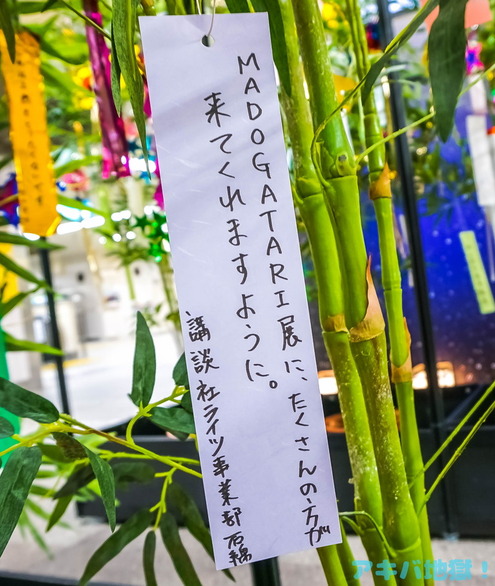 MADOGATARI展に、たくさんの方が
来てくれますように。
講談社ライツ事業部 石鍋
アキバ地獄！